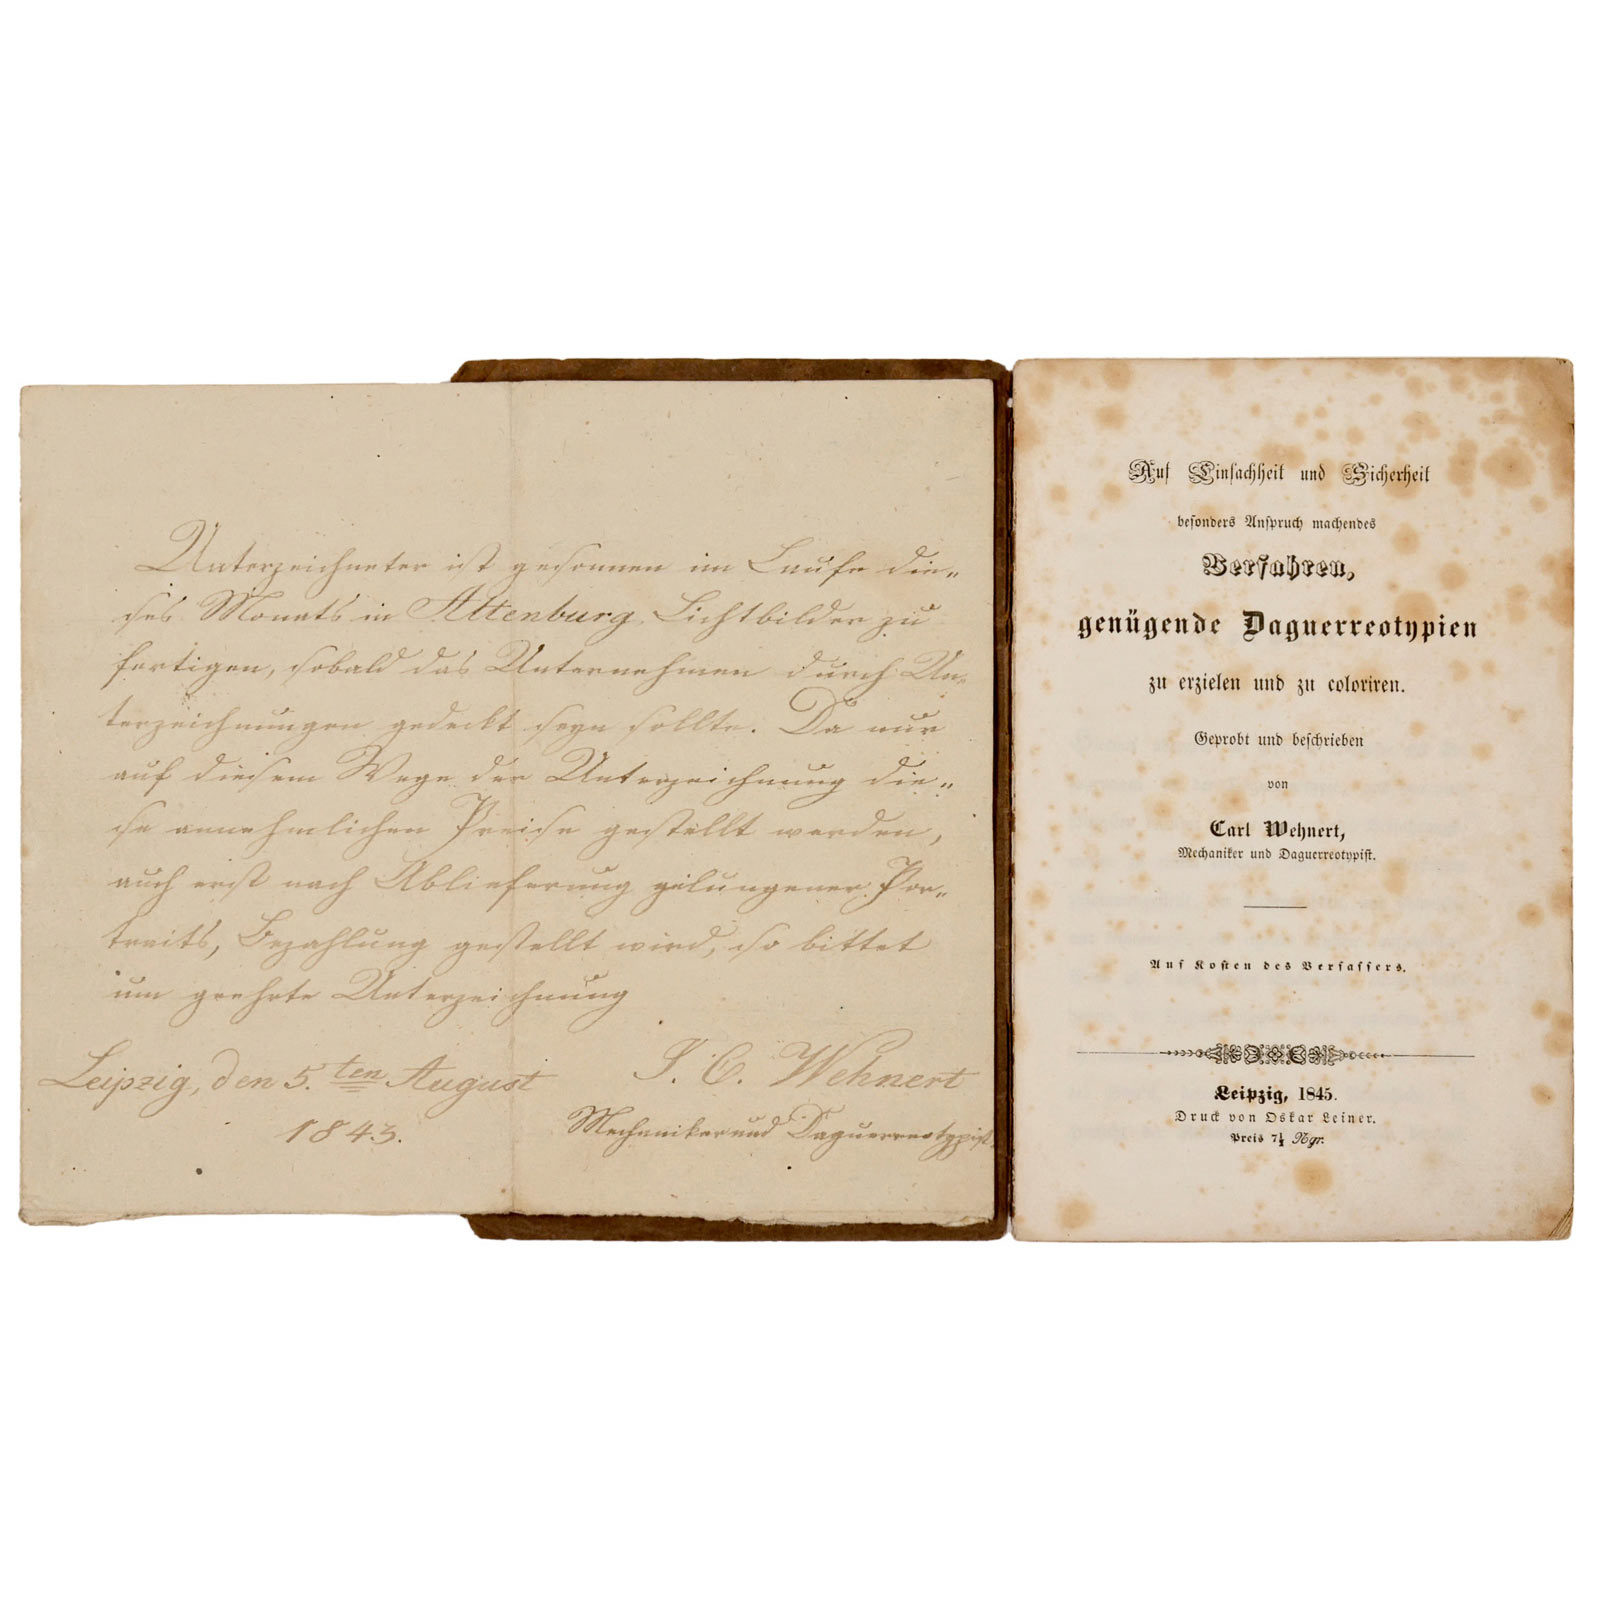 Unterzeichneter ist gesonnen im Laufe die„
ses Monats in Altenburg Lichtbilder zu
fertigen, sobald das Unternehmen durch Un„
terzeichnungen gedeckt seyn sollte. Da nur
auf diesem Wege der Unterzeichnung die„
se annehmlichen Preise gestellt werden,
auch erst nach Ablieferung gelungener Por„
traits, Bezahlung gestellt wird, so bittet
um geehrte Unterzeichnung
Leipzig, den 5.ten August
1843.
J. C. Wehnert
Mechaniker und Daguerreotypist.
Auf Einfachheit und Sicherheit
besonders Anspruch machendes
Verfahren,
genügende Daguerreotypien
zu erzielen und zu coloriren.
Geprobt und beschrieben
von
Carl Wehnert,
Mechaniker und Daguerreotypist.
Auf Kosten des Verfassers.
Leipzig, 1845.
Druck von Oskar Leiner.
Preis 7½ Ngr.